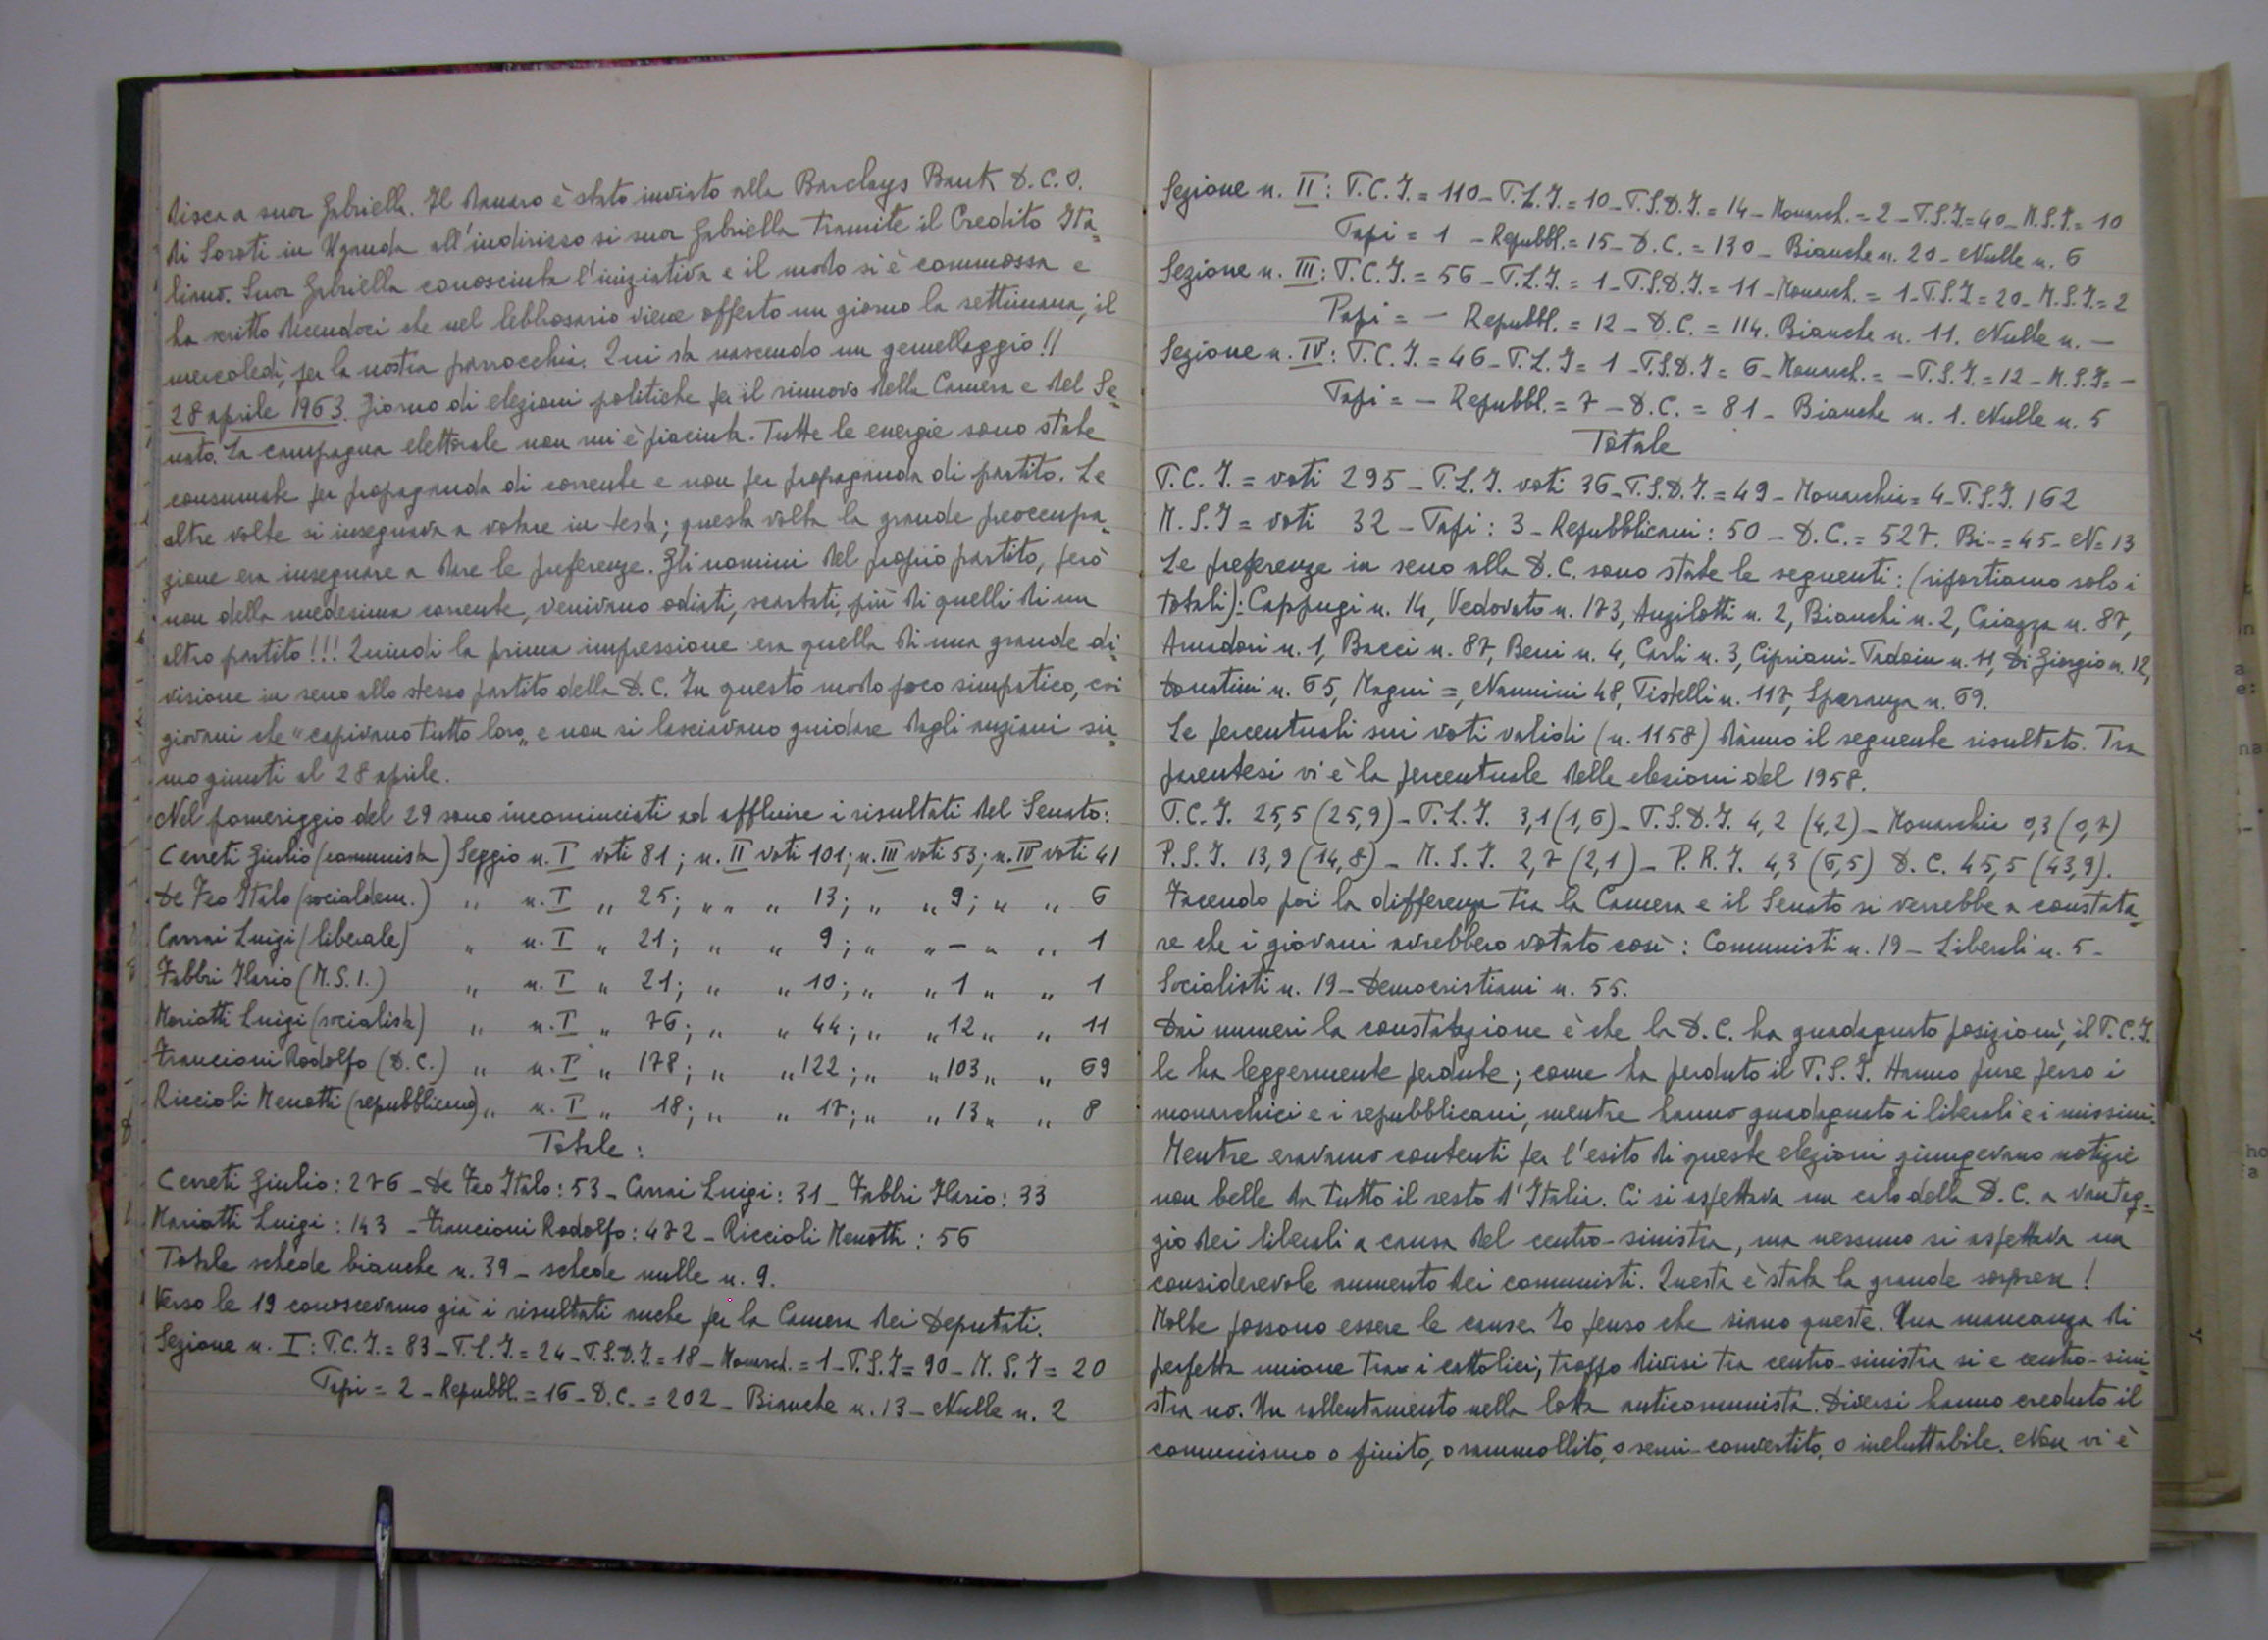 disca a suor Gabriella. Il denaro è stato inviato alla Barclays Bank D.C.O.
di Soroti in Uganda all'indirizzo si suor Gabriella tramite il Credito Ita=
liano. Suor Gabriella conosciuta l'iniziativa e il modo si è commossa e
ha scritto dicendoci che nel lebbrosario viene offerto un giorno la settimana, il
mercoledì, per la nostra parrocchia. Qui sta nascendo un gemellaggio!!
28 aprile 1963. Giorno di elezioni politiche per il rinnovo della Camera e del Se=
nato. La campagna elettorale non mi è piaciuta. Tutte le energie sono state
consumate per propaganda di corrente e non per propaganda di partito. Le
altre volte si insegnava a votare in testa; questa volta la grande preoccupa=
zione era insegnare a dare le preferenze. Gli uomini del proprio partito, però
non della medesima corrente, venivano odiati, scartati, più di quelli di un
altro partito!!! Quindi la prima impressione era quella di una grande di=
visione in seno allo stesso partito della D.C. In questo modo poco simpatico, coi
giovani che "capivano tutto loro" e non si lasciavano guidare dagli anziani sia=
mo giunti al 28 aprile.
Nel pomeriggio del 29 sono incominciati ad affluire i risultati del Senato:
Cerreti Giulio (comunista) Seggio n. I voti 81; n. II voti 101; n. III voti 53; n. IV voti 41
De Feo Italo (socialdem.) " n. I " 25; " " " 13; " " 9; " " 6
Carrai Luigi (liberale) " n. I " 21; " " 9; " " - " " 1
Fabbri Ilario (M.S.I.) " n. I " 21; " " 10; " " 1 " " 1
Mariotti Luigi (socialista) " n. I " 76; " " 44; " " 12 " " 11
Francioni Rodolfo (D.C.) " n. I " 178; " " 122; " " 103 " " 69
Riccioli Menotti (repubblicano) " n. I " 18; " " 17; " " 13 " " 8
Totale:
Cerreti Giulio: 276 - De Feo Italo: 53 - Carrai Luigi: 31 - Fabbri Ilario: 33
Mariotti Luigi: 143 - Francioni Rodolfo: 472 - Riccioli Menotti: 56
Totale schede bianche n. 39 - schede nulle n. 9.
Verso le 19 conoscevamo già i risultati anche per la Camera dei Deputati.
Sezione n. I: P.C.I. = 83 - P.L.I. = 24 - P.S.D.I. = 18 - Monarch. = 1 - P.S.I = 90 - M.S.I = 20
Papi = 2 - Repubbl. = 16 - D.C. = 202 - Bianche n. 13 - Nulle n. 2
Sezione n. II: P.C.I. = 110 - P.L.I. = 10 - P.S.D.I. = 14 - Monarch. = 2 - P.S.I = 40 - M.S.I. = 10
Papi = 1 - Repubbl. = 15 - D.C. = 130 - Bianche n. 20 - Nulle n. 6
Sezione n. III: P.C.I. = 56 - P.L.I. = 1 - P.S.D.I. = 11 - Monarch. = 1 - P.S.I = 20 - M.S.I = 2
Papi = - Repubbl. = 12 - D.C. = 114. Bianche n. 11. Nulle n. -
Sezione n. IV: P.C.I. = 46 - P.L.I = 1 - P.S.D.I = 6 - Monarch. = - P.S.I. = 12 - M.S.I = -
Papi = - Repubbl. = 7 - D.C. = 81 - Bianche n. 1. Nulle n. 5
Totale
P.C.I. = voti 295 - P.L.I. voti 36 - P.S.D.I. = 49 - Monarchia = 4 - P.S.I. 162
M.S.I = voti 32 - Papi: 3 - Repubblicani: 50 - D.C. = 527. Bi- = 45 - N = 13
Le preferenze in seno alla D.C. sono state le seguenti: (riportiamo solo i
totali): Cappugi n. 14, Vedovato n. 173, Anzilotti n. 2, Bianchi n. 2, Caiazza n. 87,
Amadori n. 1, Bacci n. 87, Beni n. 4, Carli n. 3, Cipriani-Tadoin n. 11, Di Giorgio n. 12,
Donatini n. 65, Magni =, Nannini 48, Pistelli n. 117, Speranza n. 69.
Le percentuali sui voti validi (n. 1158) dànno il seguente risultato. Tra
parentesi vi è la percentuale delle elezioni del 1958.
P.C.I. 25,5 (25,9) - P.L.I. 3,1 (1,6) - P.S.D.I. 4,2 (4,2) - Monarchia 0,3 (0,7)
P.S.I. 13,9 (14,8) - M.S.I. 2,7 (2,1) - P.R.I. 4,3 (6,5) D.C. 45,5 (43,9).
Facendo poi la differenza tra la Camera e il Senato si verrebbe a constata=
re che i giovani avrebbero votato così: Comunisti n. 19 - Liberali n. 5 -
Socialisti n. 19 - Democristiani n. 55.
Dai numeri la constatazione è che la D.C. ha guadagnato posizioni, il P.C.I.
le ha leggermente perdute; come ha perduto il P.S.I. Hanno pure perso i
monarchici e i repubblicani, mentre hanno guadagnato i liberali e i missini.
Mentre eravamo contenti per l'esito di queste elezioni giungevano notizie
non belle da tutto il resto d'Italia. Ci si aspettava un calo della D.C. a vantag=
gio dei liberali a causa del centro-sinistra, ma nessuno si aspettava un
considerevole aumento dei comunisti. Questa è stata la grande sorpresa!
Molte possono essere le cause. Io penso che siano queste. Una mancanza di
perfetta unione tra i cattolici; troppo divisi tra centro-sinistra si e centro-sini=
stra no. Un rallentamento nella lotta anticomunista. Diversi hanno creduto il
comunismo o finito, o rammollito, o semi-convertito, o ineluttabile. Non vi è